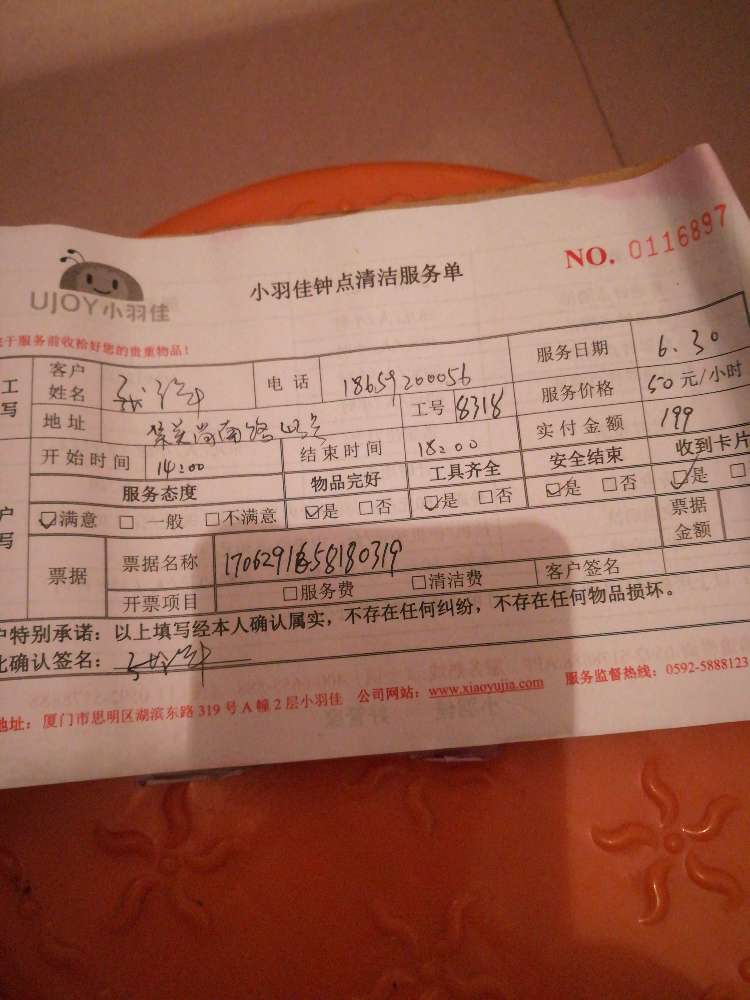 UJOY小羽佳
小羽佳钟点清洁服务单
NO. 0116897
于服务前收拾好您的贵重物品!
工
写
客户姓名
电话 18659200056
服务日期 6.30
地址
工号 8318
服务价格 50元/小时
开始时间 14:00
结束时间 18:00
实付金额 199
服务态度 物品完好 工具齐全 安全结束 收到卡片
☑满意 □ 一般 □不满意 ☑是 □否 ☑是 □否 ☑是 □否 ☑是 □
户
写
票据
票据名称
票据金额
开票项目 □服务费 □清洁费 客户签名
户特别承诺:以上填写经本人确认属实,不存在任何纠纷,不存在任何物品损坏。
此确认签名:
地址:厦门市思明区湖滨东路319号A幢2层小羽佳 公司网站:www.xiaoyujia.com 服务监督热线:0592-5888123